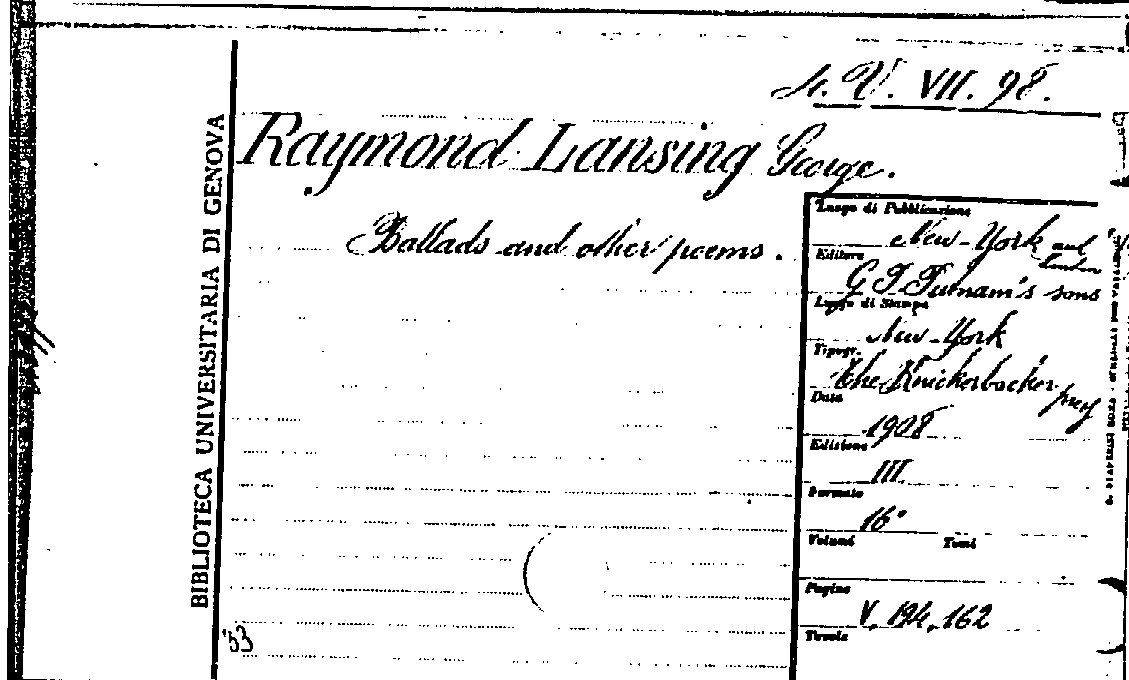 4. V. VII. 98.
BIBLIOTECA UNIVERSITARIA DI GENOVA
Raymond Lansing George.
Ballads and other poems.
Luogo di Pubblicazione
New-York and London
Editore
G P Putnam's sons
Luogo di Stampa
New-York
Tipogr.
The Knickerbocker press
Data
1908
Edizione
III
Formato
16°
Volumi Tomi
Pagine
V, 194, 162
Tavole
'33